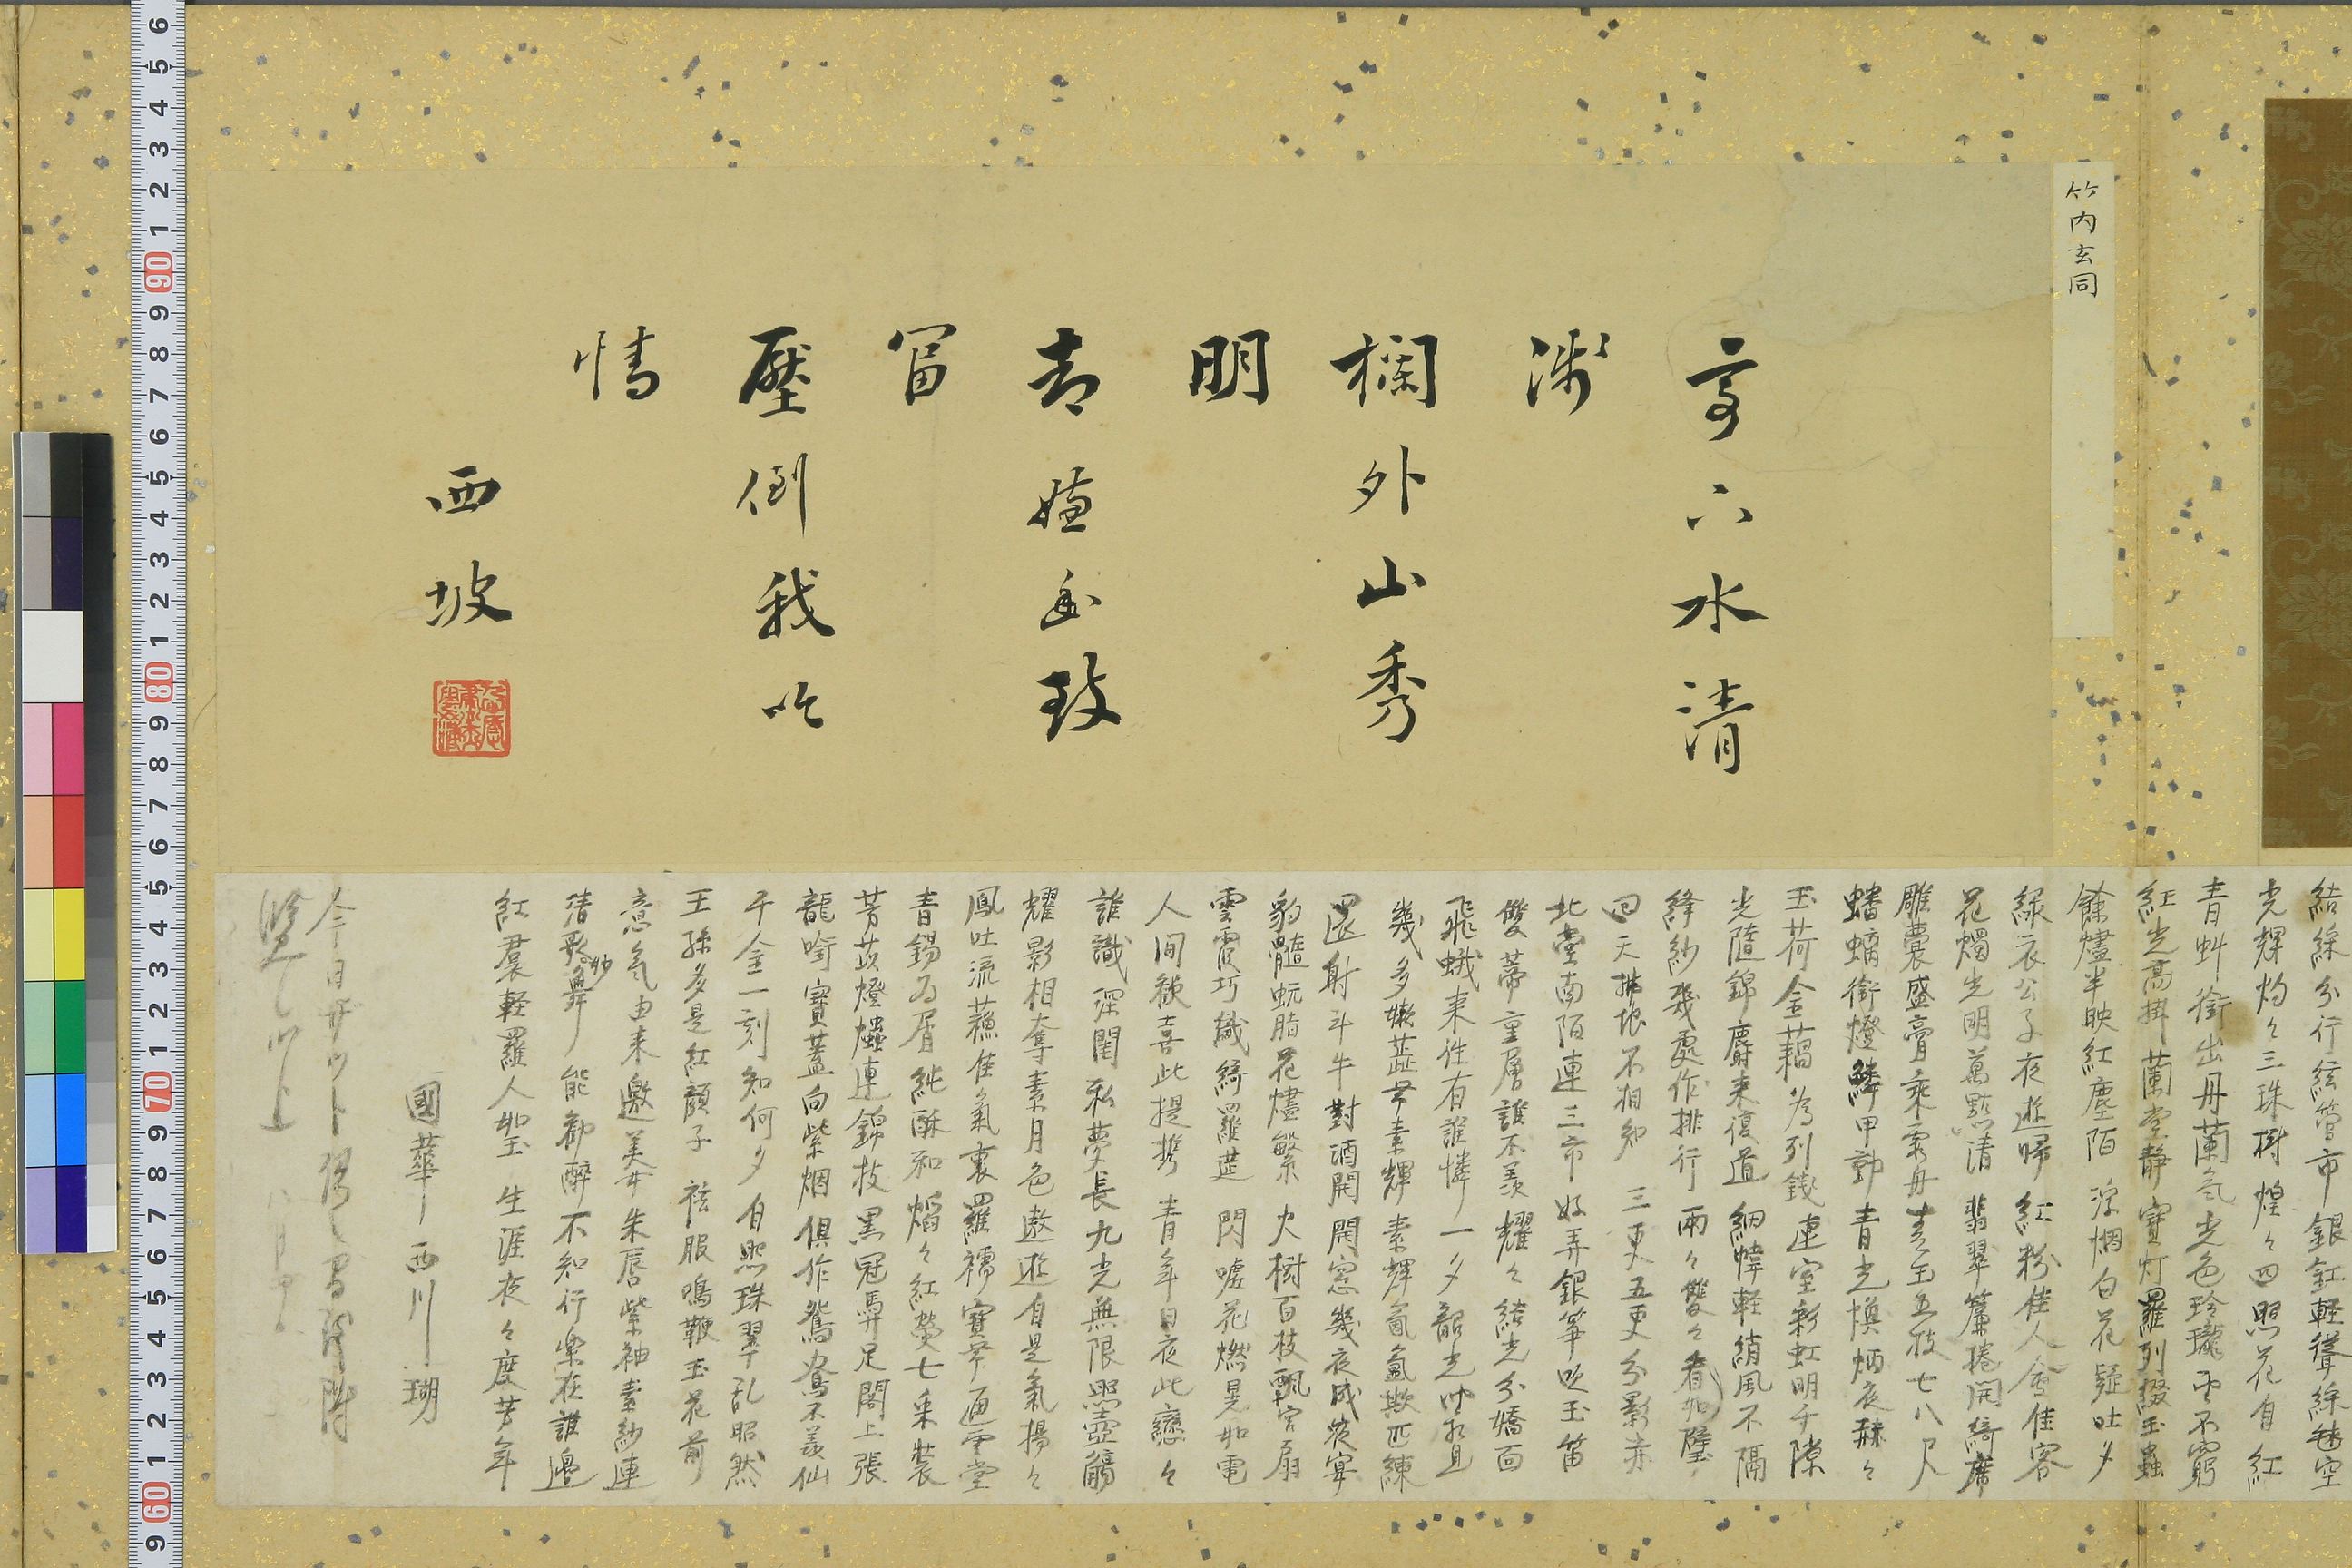 竹内玄同
亭下水清
淺
欄外山秀
明
却嫌並致
富
壓倒我吟
情
西坡
結綵分行絃管市銀釭軽聳綵毬空
光輝灼々三珠樹煌々四照花自紅
青虯銜出丹蘭気光色玲瓏望不窮
紅光高掛蘭堂静寶灯羅列綴玉蟲
餘燼半映紅塵陌深烟白花疑吐夕
緑衣公子夜遊帰紅粉佳人會佳容
花燭光明萬點清翡翠簾捲開綺席
雕嚢盛膏乗霧丹青玉五枝七八尺
蟠螭銜燈鱗甲動青光煥炳夜赫々
玉荷金藕為列錢連室彩虹明千隙
光陰錦麝来復道細幃軽綃風不隔
絳紗幾處作排行両々雙々看如璧
回天拂地不相知三更五更分影赤
北堂南陌連三市好弄銀箏吹玉笛
雙蒂重層誰不羨耀々結光分嬌面
飛蛾来往有誰憐一夕韶光
幾多嫩蕋早素輝素輝氤氳欺匹練
還射斗牛對酒開開窓幾夜成夜宴
豹髓蚖脂花燼繁火樹百枝飄宮扇
雲霞巧織綺羅莚閃嘘花燃晃如電
人间歓喜此提携青年日夜此戀々
誰識深閨私夢長九光無限照壺觴
耀影相奪素月色遨遊自是氣揚々
鳳吐流蘇佳氣裏羅襦寶帶通雲堂
青錫為屑純酥和焰々紅熒七采装
芳茨燈爐連錦枝黒冠馬丹足閣上張
龍唫寶蓋向紫烟俱作鴛鴦不羨仙
千金一刻知何夕自照珠翠乱昭然
王孫多是紅顔子祛服鳴鞭玉花前
意氣由来邀美女朱唇紫袖素紗連
清歌妙舞能勧醉不知行樂在誰邊
紅裙軽羅人如玉生涯夜々度芳年
國華西川瑚